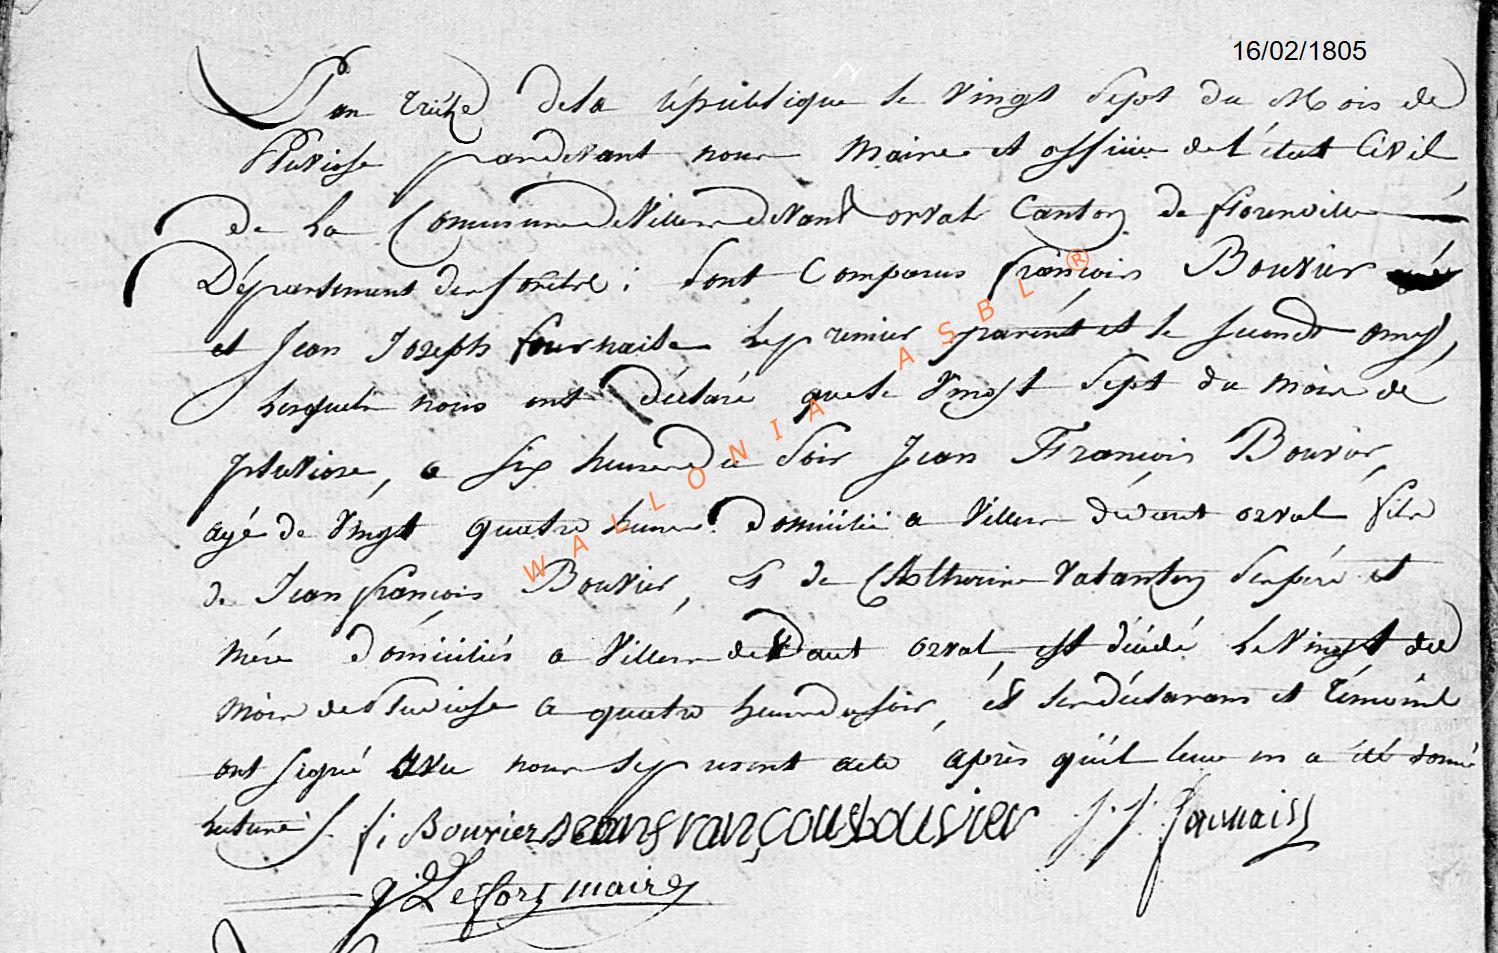 16/02/1805
L'an treize de la république le vingt sept du Mois de
Pluviose pardevant nous Maire et officier de l'état Civil
de la Commune de Villers devant orval Canton de florenville
Département des forêts : sont Comparus françois Bouvier
et Jean Joseph fournaise le premier parent et le second amy,
lesquels nous ont déclaré que le vingt sept du mois de
pluviose, a six heures du soir Jean François Bouvier,
agé de vingt quatre heures domicilié a Villers devant orval fils
de Jean françois Bouvier, et de Catherine Watanton ses pére et
mére domiciliés a Villers devant orval, est décédé le vingt du
mois de Pluviose a quatre heures du soir, et les déclarans et témoins
ont signé avec nous le present acte après qu'il leur en a été donné
lecture f: Bouvier jean françois bouvier j. j. fournaise
j: Lefort maire
WALLONIA ASBL ®